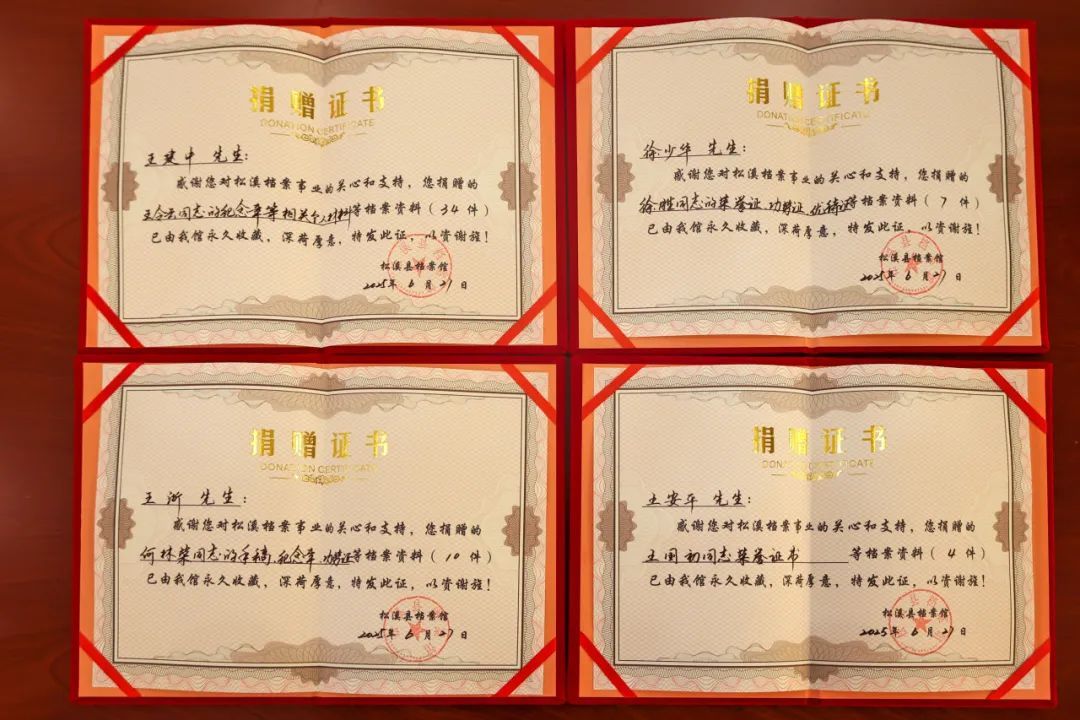 捐赠证书
DONATION CERTIFICATE
王建中 先生:
感谢您对松溪档案事业的关心和支持，您捐赠的
同志的纪念章等相关个人材料等档案资料(34件)
已由我馆永久收藏，深荷厚意，特发此证，以资谢旌!
松溪县档案馆
2025年6月27日
捐赠证书
DONATION CERTIFICATE
徐少华 先生:
感谢您对松溪档案事业的关心和支持，您捐赠的
徐胜同志的荣誉证、功劳证、优待证等档案资料(7件)
已由我馆永久收藏，深荷厚意，特发此证，以资谢旌!
松溪县档案馆
2025年6月27日
捐赠证书
DONATION CERTIFICATE
王浙 先生:
感谢您对松溪档案事业的关心和支持，您捐赠的
何林荣同志的手稿、纪念章、功劳证等档案资料(10件)
已由我馆永久收藏，深荷厚意，特发此证，以资谢旌!
松溪县档案馆
2025年6月27日
捐赠证书
DONATION CERTIFICATE
王安平 先生:
感谢您对松溪档案事业的关心和支持，您捐赠的
王国初同志荣誉证书 等档案资料(4件)
已由我馆永久收藏，深荷厚意，特发此证，以资谢旌!
松溪县档案馆
2025年6月27日